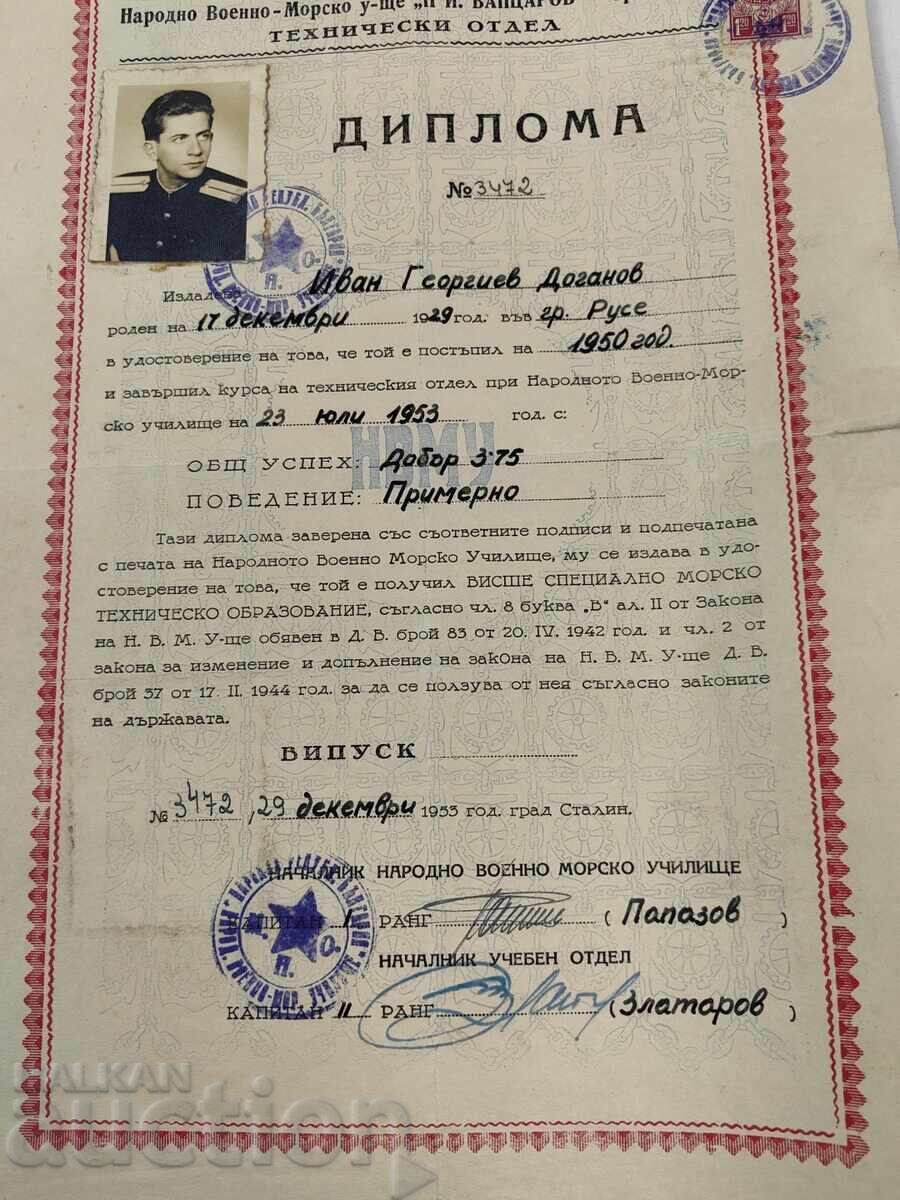 Народно Военно-Морско у-ще „Н Й. ВАПЦАРОВ"
ТЕХНИЧЕСКИ ОТДЕЛ
1.20 1.20
ЛЕВА
ДИПЛОМА
№ 3472
Издадена Иван Георгиев Доганов
роден на 17 декември 1929 год. във гр. Русе
в удостоверение на това, че той е постъпил на 1950 год.
и завършил курса на техническия отдел при Народното Военно-Мор-
ско училище на 23 юли 1953 год. с:
НВМУ
ОБЩ УСПЕХ: Добър 3.75
ПОВЕДЕНИЕ: Примерно
Тази диплома заверена със съответните подписи и подпечатана
с печата на Народното Военно Морско Училище, му се издава в удо-
стоверение на това, че той е получил ВИСШЕ СПЕЦИАЛНО МОРСКО
ТЕХНИЧЕСКО ОБРАЗОВАНИЕ, съгласно чл. 8 буква „В" ал. II от Закона
на Н. В. М. У-ще обявен в Д. В. брой 83 от 20. IV. 1942 год и чл. 2 от
закона за изменение и допълнение на закОна на Н. В. М. У-ще Д. В.
брой 37 от 17. II. 1944 год. за да се ползува от нея съгласно законите
на държавата.
ВИПУСК
№ 3472, 29 декември 1953 год. град Сталин.
НАЧАЛНИК НАРОДНО ВОЕННО МОРСКО УЧИЛИЩЕ
КАПИТАН I РАНГ ( Папазов )
НАЧАЛНИК УЧЕБЕН ОТДЕЛ
КАПИТАН II РАНГ (Златаров )
BALKAN
auction